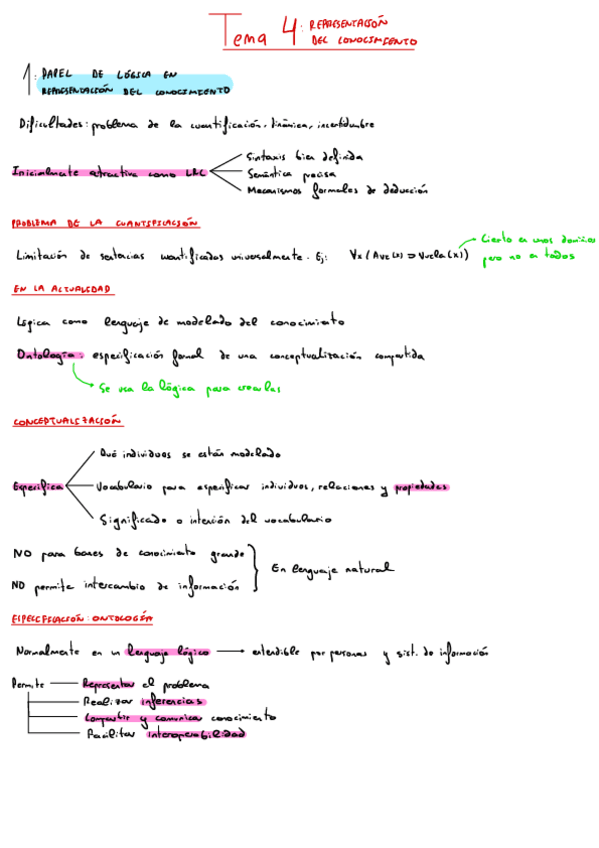 Tema 4: REPRESENTACIÓN
DEL CONOCIMIENTO
1. PAPEL DE LÓGICA EN
REPRESENTACIÓN DEL CONOCIMIENTO
Dificultades: problema de la cuantificación, dinámica, incertidumbre
Inicialmente atractiva como LRC
Sintaxis bien definida
Semántica precisa
Mecanismos formales de deducción
PROBLEMA DE LA CUANTIFICACIÓN
Limitación de sentencias cuantificadas universalmente. Ej: ∀x (Ave(x) ⊃ Vuela(x))
Cierto en unos dominios
pero no en todos
EN LA ACTUALIDAD
Lógica como lenguaje de modelado del conocimiento
Ontología: especificación formal de una conceptualización compartida
Se usa la lógica para crearlas
CONCEPTUALIZACIÓN
Especifica
Qué individuos se están modelado
Vocabulario para especificar individuos, relaciones y propiedades
Significado o intención del vocabulario
NO para bases de conocimiento grande
NO permite intercambio de información
En lenguaje natural
ESPECIFICACIÓN: ONTOLOGÍA
Normalmente en un lenguaje lógico → entendible por personas y sist. de información
Permite
Representar el problema
Realizar inferencias
Compartir y comunicar conocimiento
Facilitar interoperabilidad